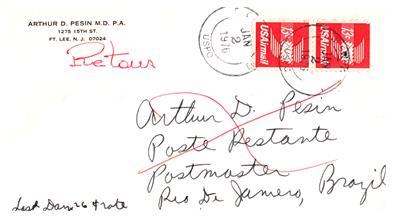 ARTHUR D. PESIN M.D. P.A.
1275 15TH ST.
FT. LEE, N.J. 07024
Retour
JAN
2
1976
USPO
USAirmail
13c
USAirmail
13c
2
1976
Arthur D. Pesin
Poste Restante
Postmaster
Rio De Janiero, Brazil
Last Day 26 & rate